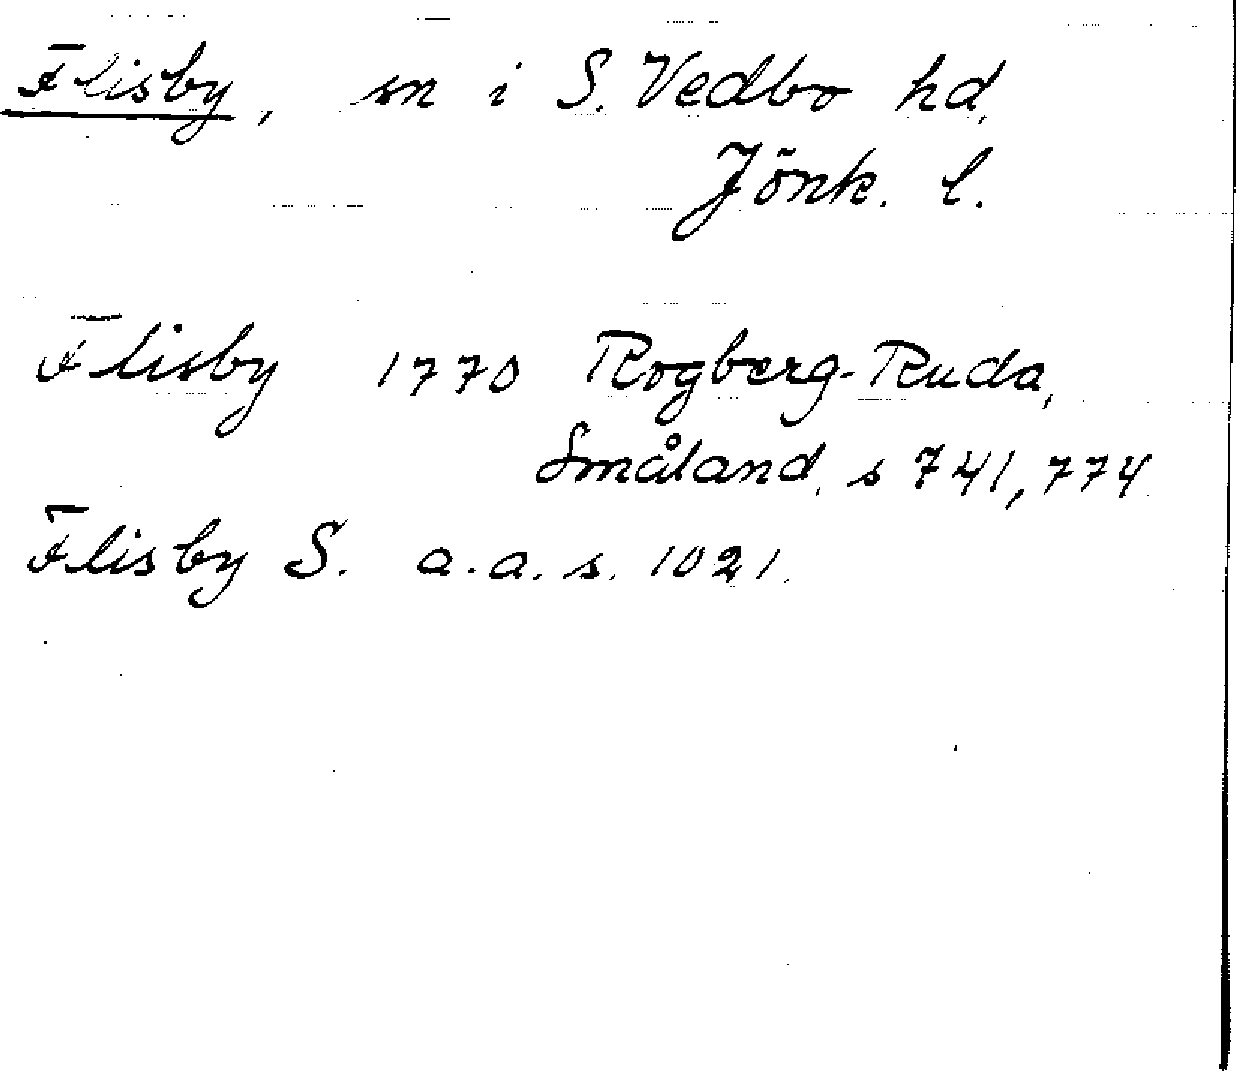 Flisby, sn i S. Vedbo hd,
Jönk. l.
Flisby 1770 Rogberg-Ruda,
Småland, s 741, 774.
Flisby S. a.a. s. 1021.